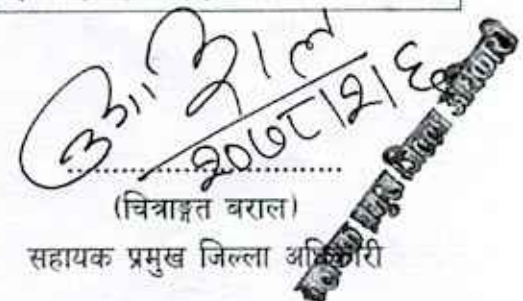 २०७८।२।६
(चित्राङ्गत बराल)
सहायक प्रमुख जिल्ला अधिकारी
सहायक प्रमुख जिल्ला अधिकारी